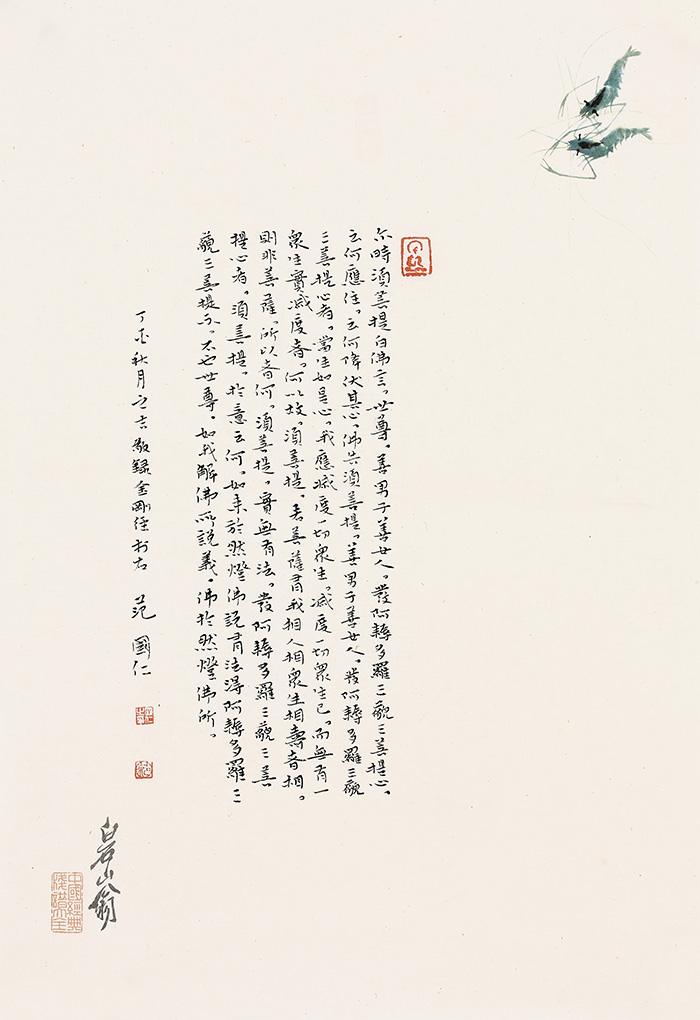 尔時須菩提白佛言。世尊。善男子善女人。發阿耨多羅三藐三菩提心。
云何應住。云何降伏其心。佛告須菩提。善男子善女人。發阿耨多羅三藐
三菩提心者。當生如是心。我應滅度一切衆生。滅度一切衆生已。而無有一
衆生實滅度者。何以故。須菩提。若菩薩有我相人相衆生相壽者相。
則非菩薩。所以者何。須菩提。實無有法。發阿耨多羅三藐三菩
提心者。須菩提。於意云何。如来於然燈佛說有法得阿耨多羅三
藐三菩提不。不也世尊。如我解佛所說義。佛於然燈佛所。
丁酉秋月之吉敬録金剛經於右 范國仁
白石山翁
中國經典